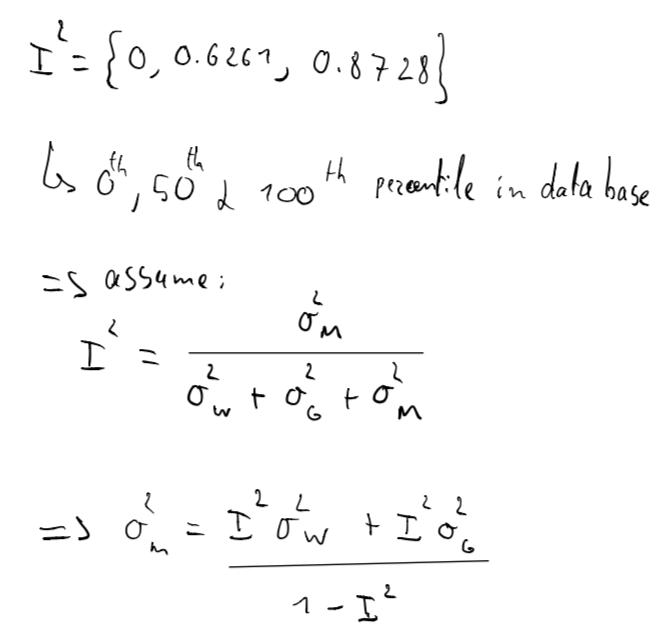 I² = {0, 0.6261, 0.8728}
↳ 0th, 50th & 100th percentile in data base
=> assume:
I² = σ²_M / (σ²_W + σ²_G + σ²_M)
=> σ²_m = (I² σ²_W + I² σ²_G) / (1 - I²)